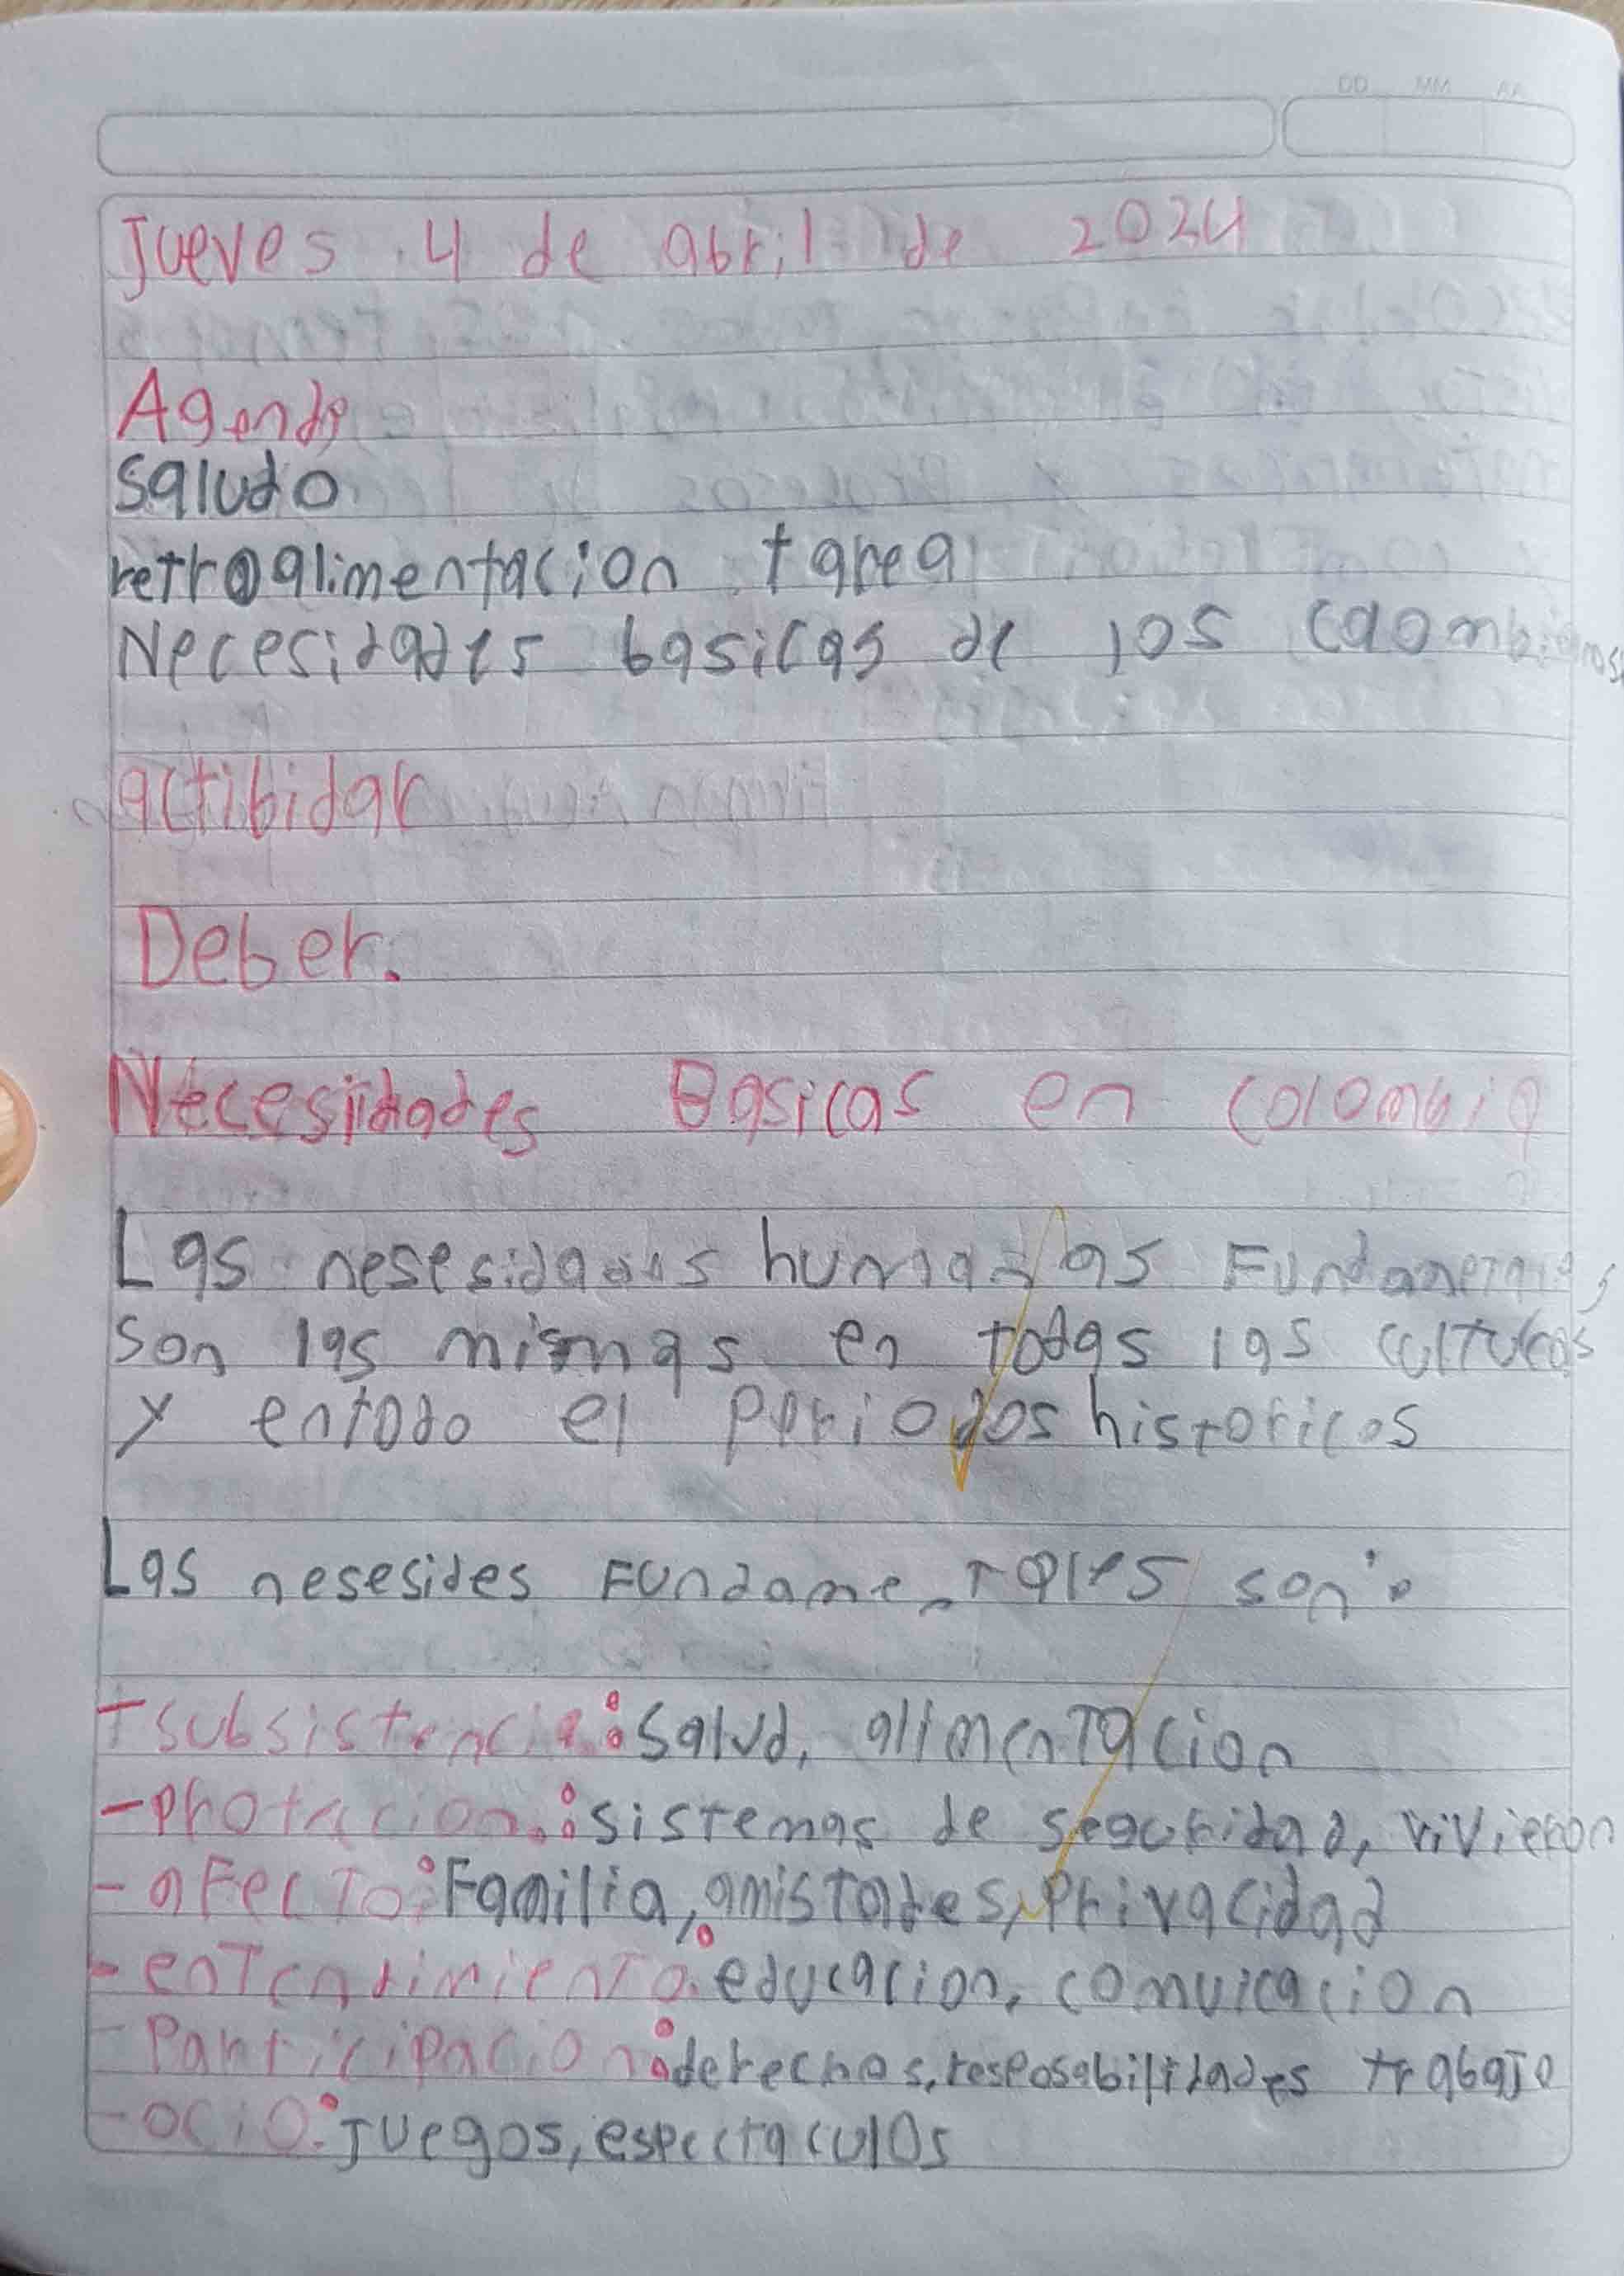 DD MM AA
Jueves 4 de abril de 2024
Agenda
saludo
retroalimentacion tarea
Necesidades basicas de los caombianos
actibidar
Deber.
Necesidades Basicas en colombia
Las nesesidades humanas Fundamentales
son las mismas en todas las culturas
y entodo el periodos historicos
Las nesesides Fundamentales son:
- subsistencia: salud, alimentacion
- protacion: sistemas de seguridad, vivieron
- aFecTo: Familia, amistades, privacidad
- enTendimienTo: educacion, comuicacion
- Participacion: derechos, resposabilidades trabajo
- ocio: juegos, espectaculos